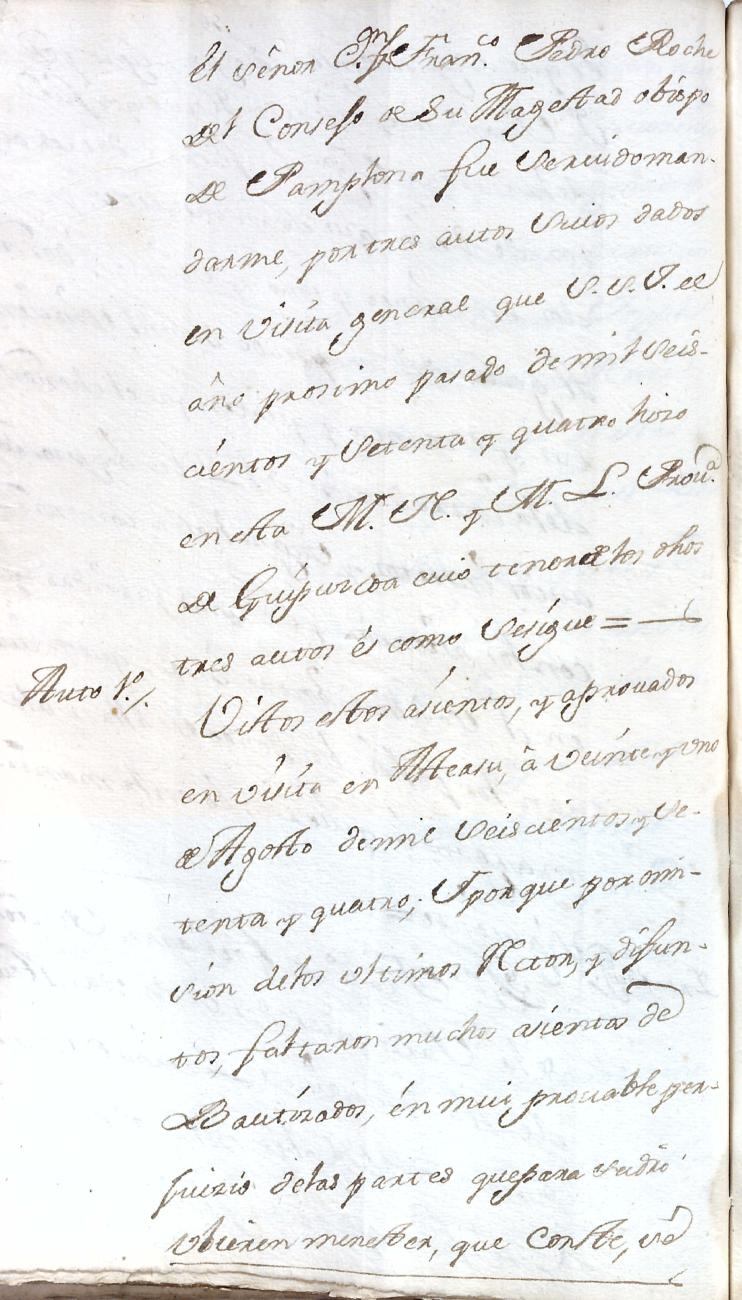 El señor D.n fr Fran.co Pedro Roche
del Consejo de Su Magestad obispo
de Pamplona fue seruido man-
darme, por tres autos suios dados
en visita general que S. S. I. el
año prosimo pasado de mil seis-
cientos y setenta y quatro hizo
en esta M. N. y M. L. Prou.a
de Guipuzcoa cuio tenor de los dhos
tres autos es como se sigue =
Auto 1.o /.
Vistos estos asientos, y aprouados
en visita en Ateasu, â veinte y uno
de Agosto de mil seiscientos y se-
tenta y quatro; Y por que por omi-
sion de los vltimos Rector, y difun-
tos, faltaron muchos asientos de
Bautizados, én mui prouable per-
juizio de las partes que para su dro
vbieren menester, que Conste, se